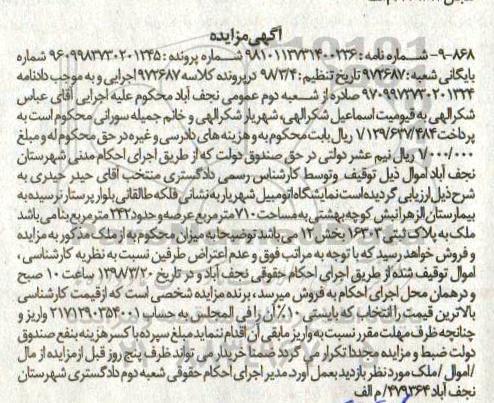 آگهی مزایده
۹-۸۶۸- شـماره نامه : ۹۸۱۰۱۱۳۷۳۱۴۰۰۲۳۶ شـماره پرونده : ۹۶۰۹۹۸۳۷۳۰۲۰۱۲۴۵ شماره
بایگانی شعبه : ۹۷۳۶۸۷ تاریخ تنظیم : ۹۸/۳/۴ در پرونده کلاسه ۹۷۳۶۸۷ اجرایی و به موجب دادنامه
۹۷۰۹۹۷۳۷۳۰۲۰۱۳۳۴ صادره از شـعبه دوم عمومی نجف آباد محکوم علیه اجرایی آقای عباس
شکرالهی به قیومیت اسماعیل شکرالهی، شهریار شکرالهی و خانم جمیله سورانی محکوم است به
پرداخت ۷/۱۳۹/۶۳۷/۴۸۴ ریال بابت محکوم به و هزینه های دادرسی و غیره در حق محکوم له و مبلغ
۷/۰۰۰/۰۰۰ ریال نیم عشر دولتی در حق صندوق دولت که از طریق اجرای احکام مدنی شهرستان
نجف آباد اموال ذیل توقیف وتوسط کارشناس رسمی دادگستری منتخب آقای حیدر حیدری به
شرح ذیل ارزیابی گردیده است نمایشگاه اتومبیل شهریار به نشانی فلکه طالقانی بلوار پرستار نرسیده به
بیمارستان الزهرا نبش کوچه بهشتی به مساحت ۷۱۰ متر مربع عرصه و حدود ۲۴۲ متر مربع بنا می باشد
ملک به پلاک ثبتی ۱۶۳۰۳ بخش ۱۲ می باشد توضیحا به میزان محکوم به از ملک مذکور به مزایده
و فروش خواهد رسید که با توجه به مراتب فوق و عدم اعتراض طرفین نسبت به نظریه کارشناسی ،
اموال توقیف شده از طریق اجرای احکام حقوقی نجف آباد و در تاریخ ۱۳۹۸/۳/۲۰ ساعت ۱۰ صبح
و در همان محل اجرای احکام به فروش میرسد، برنده مزایده شخصی است که از قیمت کارشناسی
بالاترین قیمت را انتخاب که بایستی ۱۰٪ آن را فی المجلس به حساب ۲۱۷۱۲۹۰۳۵۴۰۰۱ واریز و
چنانچه ظرف مهلت مقرر نسبت به واریز مابقی آن اقدام ننماید مبلغ سپرده با کسر هزینه بنفع صندوق
دولت ضبط و مزایده مجددا تکرار می گردد ضمنا خریدار می تواند ظرف پنج روز قبل از مزایده از مال
/اموال /ملک مورد نظر بازدید بعمل آورد. مدیر اجرای احکام حقوقی شعبه دوم دادگستری شهرستان
نجف آباد ۴۷۹۳۶۴/م الف